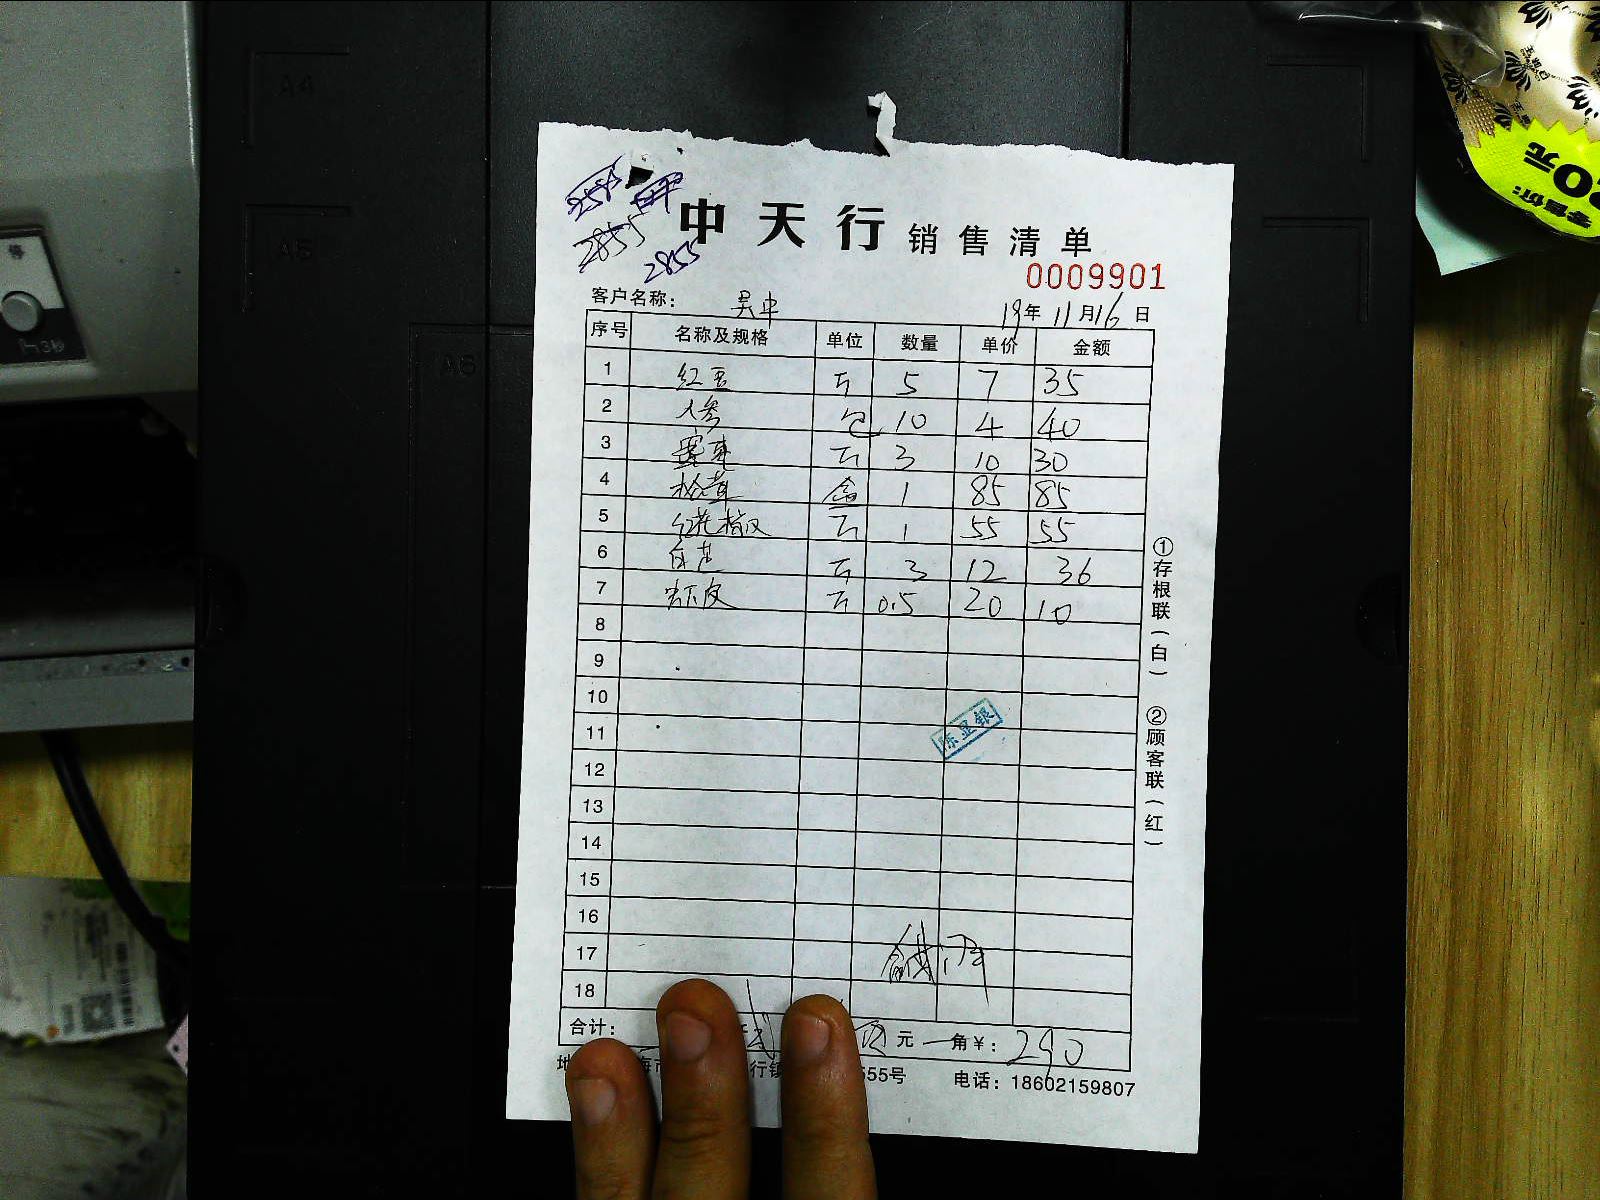 2855
2855
中天行 销售清单
0009901
客户名称: 吴中 19年11月16日
序号 名称及规格 单位 数量 单价 金额
1 红豆 斤 5 7 35
2 人参 包 10 4 40
3 斤 3 10 30
4 松茸 盒 1 85 85
5 红花椒 斤 1 55 55
6 白芷 斤 3 12 36
7 虾皮 斤 0.5 20 10
8
9
10
11
12
13
14
15
16
17
18
合计: 元 角¥: 290
海市 行镇 555号 电话: 18602159807
①存根联(白) ②顾客联(红)
陈亚银
A4
A5
A6
零售价:
0元